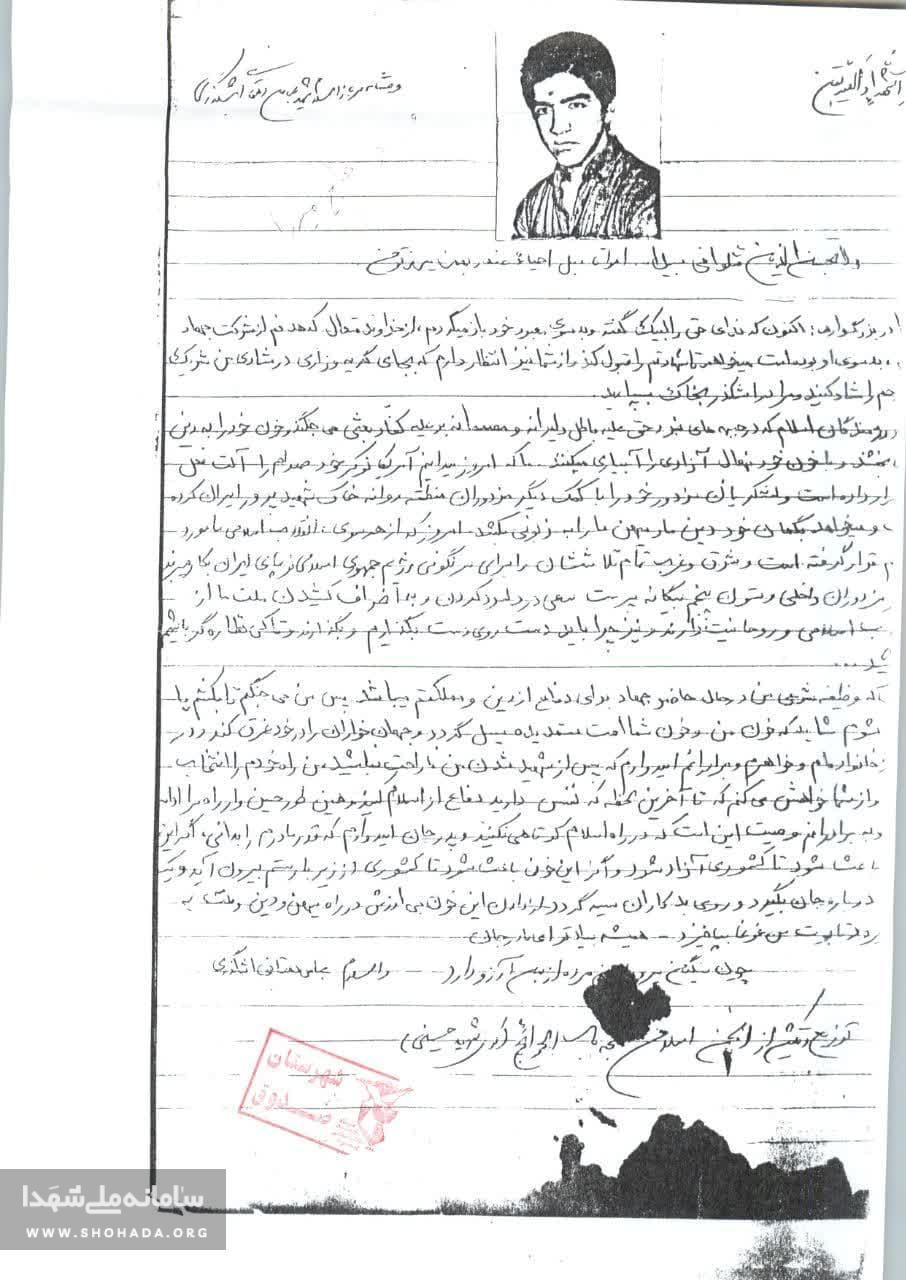 بسم رب الشهداء و الصدیقین
وصیتنامه سرباز اسلام شهید عباس دهقانی اشکذری
ولا تحسبن الذین قتلوا فی سبیل الله امواتا بل احیاء عند ربهم یرزقون
بزرگوارم: اکنون که ندای حق را لبیک گفته و به سوی معبود خود باز میگردم، از خداوند متعال که هدفم از شرکت جهاد
، به سوی او بوده است میخواهم تا شهادتم را قبول کند و از شما نیز انتظار دارم که بجای گریه و زاری در شادی من شریک
را شاد کنید و مرا در اشکذر بخاک بسپارید.
رزمندگان اسلام که در جبهه های نبرد حق علیه باطل دلیرانه و مصممانه بر علیه کفار بعثی می جنگند و خون خود را به دین
بخشند و با خون خود نهال آزادی را آبیاری میکنند. ما که امروز میدانیم آمریکا نوکر خود صدام را آلت دست
قرار داده است و لشکریان مزدور خود را با کمک دیگر مزدوران منطقه روانه خاک شهید پرور ایران کرده
و میخواهد بگمان خود دین ما و میهن ما را به زبونی بکشد. امروز که از هر سوی، انقلاب اسلامی ما مورد
قرار گرفته است و شرق و غرب تمام تلاششان را برای سرنگونی رژیم جمهوری اسلامی نوپای ایران بکار میبرند
مزدوران داخلی و ستون پنجم بیگانه پرست سعی در نابود کردن و به انحراف کشیدن ملت ما از
اسلامی و روحانیت دارند و نیز چرا باید دست روی دست بگذاریم و بگذارند و تا کی نظاره گر باشیم
که وظیفه شرعی من در حال حاضر جهاد برای دفاع از دین و مملکتم میباشد پس من می جنگم تا بکشم یا
شوم شاید که خون من و خون شما امت ستمدیده سیل گردد و جهان خواران را در خود غرق کند و در
خانواده ام و خواهرم و برادرانم امیدوارم که پس از شهید شدن من ناراحت نباشید من راه خودم را انتخاب
و از شما خواهش می کنم که تا آخرین لحظه که نفس دارید دفاع از اسلام کنید و همین طور حسین وار راه مرا ادامه
و به برادرانم وصیت این است که در راه اسلام کوتاهی نکنید و پدر جان امیدوارم که قدر مادرم را بدانی، اگر این
باعث شود تا کشوری آزاد شود و اگر این خون باعث شود تا کشوری از زیر بار ستم بیرون آید و یک
دوباره جان بگیرد و روی بدکاران سیه گردد از دادن این خون بی ارزش در راه میهن و دین و ملت به
در تابوت من غوغا بپا خیزد - همیشه بیاد تو ای مادر جان
چون ننگین مرده از بس آرزو دارد - والسلام عباس دهقانی اشکذری
توزیع و تکثیر از انجمن اسلامی شهید حسینی
شهرستان
صدوق
سامانه ملی شهدا
WWW.SHOHADA.ORG